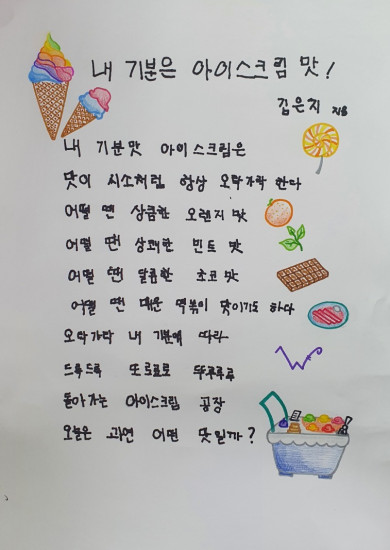 내 기분은 아이스크림 맛!
김은지 지음
내 기분맛 아이스크림은
맛이 시소처럼 항상 오락가락 한다
어떨 땐 상큼한 오렌지 맛
어떨 땐 상쾌한 민트 맛
어떨 땐 달콤한 초코 맛
어떨 땐 매운 떡볶이 맛이기도 하다
오락가락 내 기분에 따라
드륵드륵 또르르르 뚜루루루
돌아가는 아이스크림 공장
오늘은 과연 어떤 맛일까?